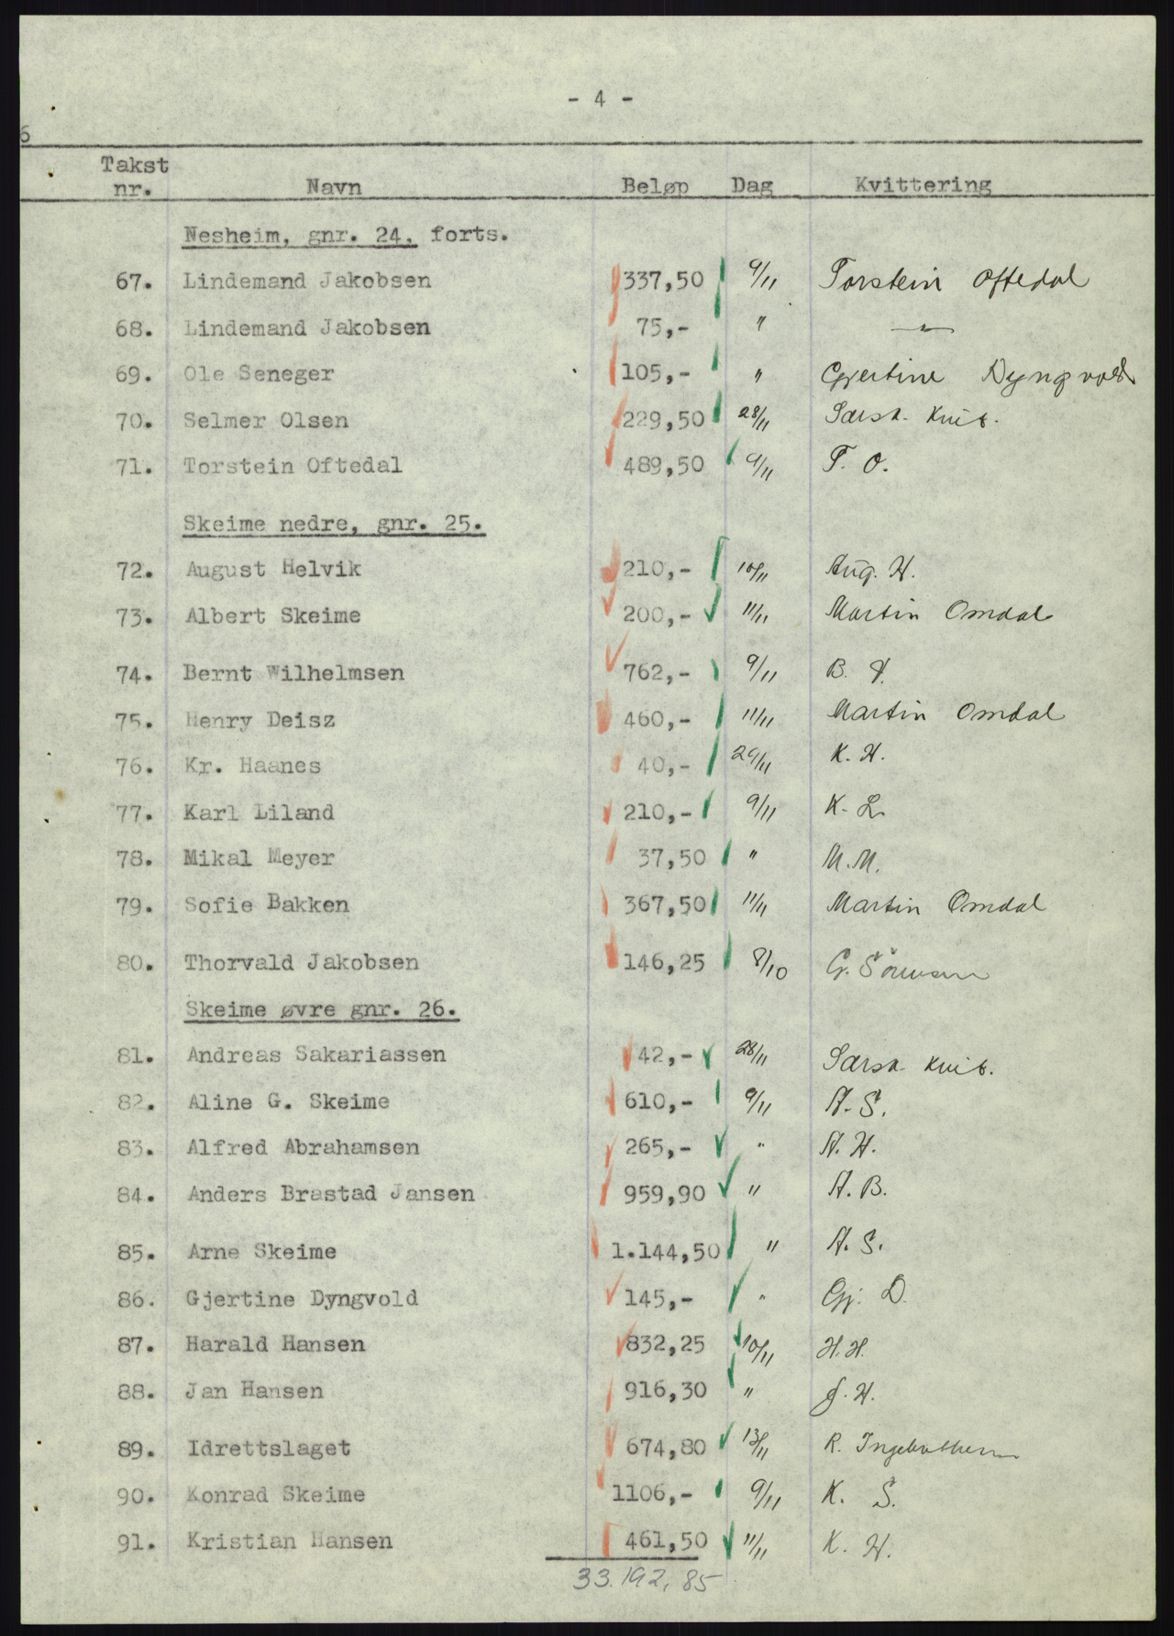 - 4 -
6
Takst nr. Navn Beløp Dag Kvittering
Nesheim, gnr. 24, forts.
67. Lindemand Jakobsen 337,50 9/11 Torstein Oftedal
68. Lindemand Jakobsen 75,- " —"—
69. Ole Seneger 105,- " Gjertine Dyngvold
70. Selmer Olsen 229,50 28/11 Særsk. kvit.
71. Torstein Oftedal 489,50 9/11 T. O.
Skeime nedre, gnr. 25.
72. August Helvik 210,- 10/11 Aug. H.
73. Albert Skeime 200,- 11/11 Martin Omdal
74. Bernt Wilhelmsen 762,- 9/11 B.
75. Henry Deisz 460,- 11/11 Martin Omdal
76. Kr. Haanes 40,- 29/11 K. H.
77. Karl Liland 210,- 9/11 K. L.
78. Mikal Meyer 37,50 " M.M.
79. Sofie Bakken 367,50 11/11 Martin Omdal
80. Thorvald Jakobsen 146,25 8/10 G.
Skeime øvre gnr. 26.
81. Andreas Sakariassen 42,- 28/11 Særsk. kvit.
82. Aline G. Skeime 610,- 9/11 A. S.
83. Alfred Abrahamsen 265,- " A. H.
84. Anders Brastad Jansen 959,90 " A. B.
85. Arne Skeime 1.144,50 " A. S.
86. Gjertine Dyngvold 145,- " Gj. D.
87. Harald Hansen 832,25 10/11 H.H.
88. Jan Hansen 916,30 " J. H.
89. Idrettslaget 674,80 13/11 R.
90. Konrad Skeime 1106,- 9/11 K. S.
91. Kristian Hansen 461,50 11/11 K. H.
33.192,85